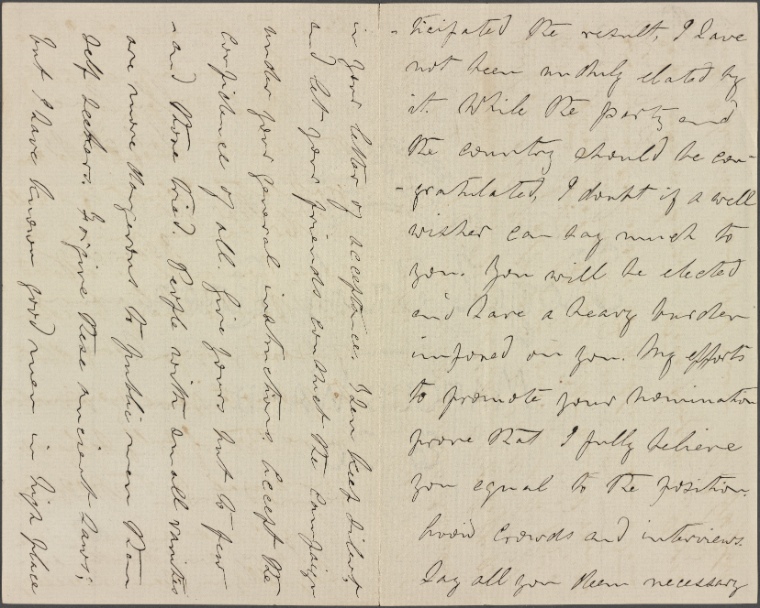 -ticipated the result, I have
not been unduly elated by
it. While the party and
the country should be con-
-gratulated, I doubt if a well
wisher can say much to
you. You will be elected
and have a heavy burden
imposed on you. My efforts
to promote your nomination
prove that I fully believe
you equal to the position.
Avoid crowds and interviews.
Say all you deem necessary
in your letter of acceptance. Then keep silent
and let your friends conduct the campaign
under your general instructions. Accept the
confidence of all. Give yours but to few
-and those tried. People with small vanities
are more dangerous to public men than
self seekers. Forgive these ancient saws;
but I have known good men in high place